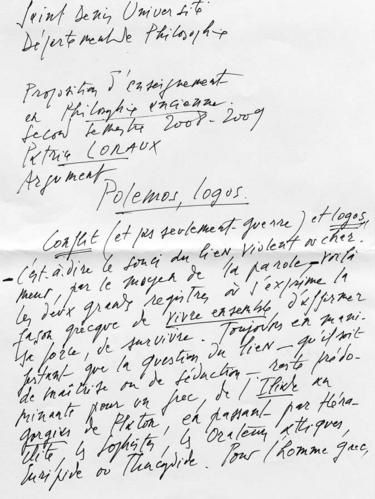 Saint Denis Université
Département de Philosophie
Proposition d'enseignement
en Philosophie ancienne.
Second semestre 2008-2009
Patrice LORAUX
Argument
Polemos, logos.
Conflit (et pas seulement guerre) et logos,
– c'est-à-dire le souci du lien violent ou char-
meur, par le moyen de la parole – voilà
les deux grands registres où s'exprime la
façon grecque de vivre ensemble, d'affirmer
sa force, de survivre. Toujours en mani-
festant que la question du lien – qu'il soit
de maîtrise ou de séduction – reste prédo-
minante pour un Grec, de l'Iliade au
Gorgias de Platon, en passant par Héra-
clite, les Sophistes, les Orateurs attiques,
Euripide ou Thucydide. Pour l'homme grec,